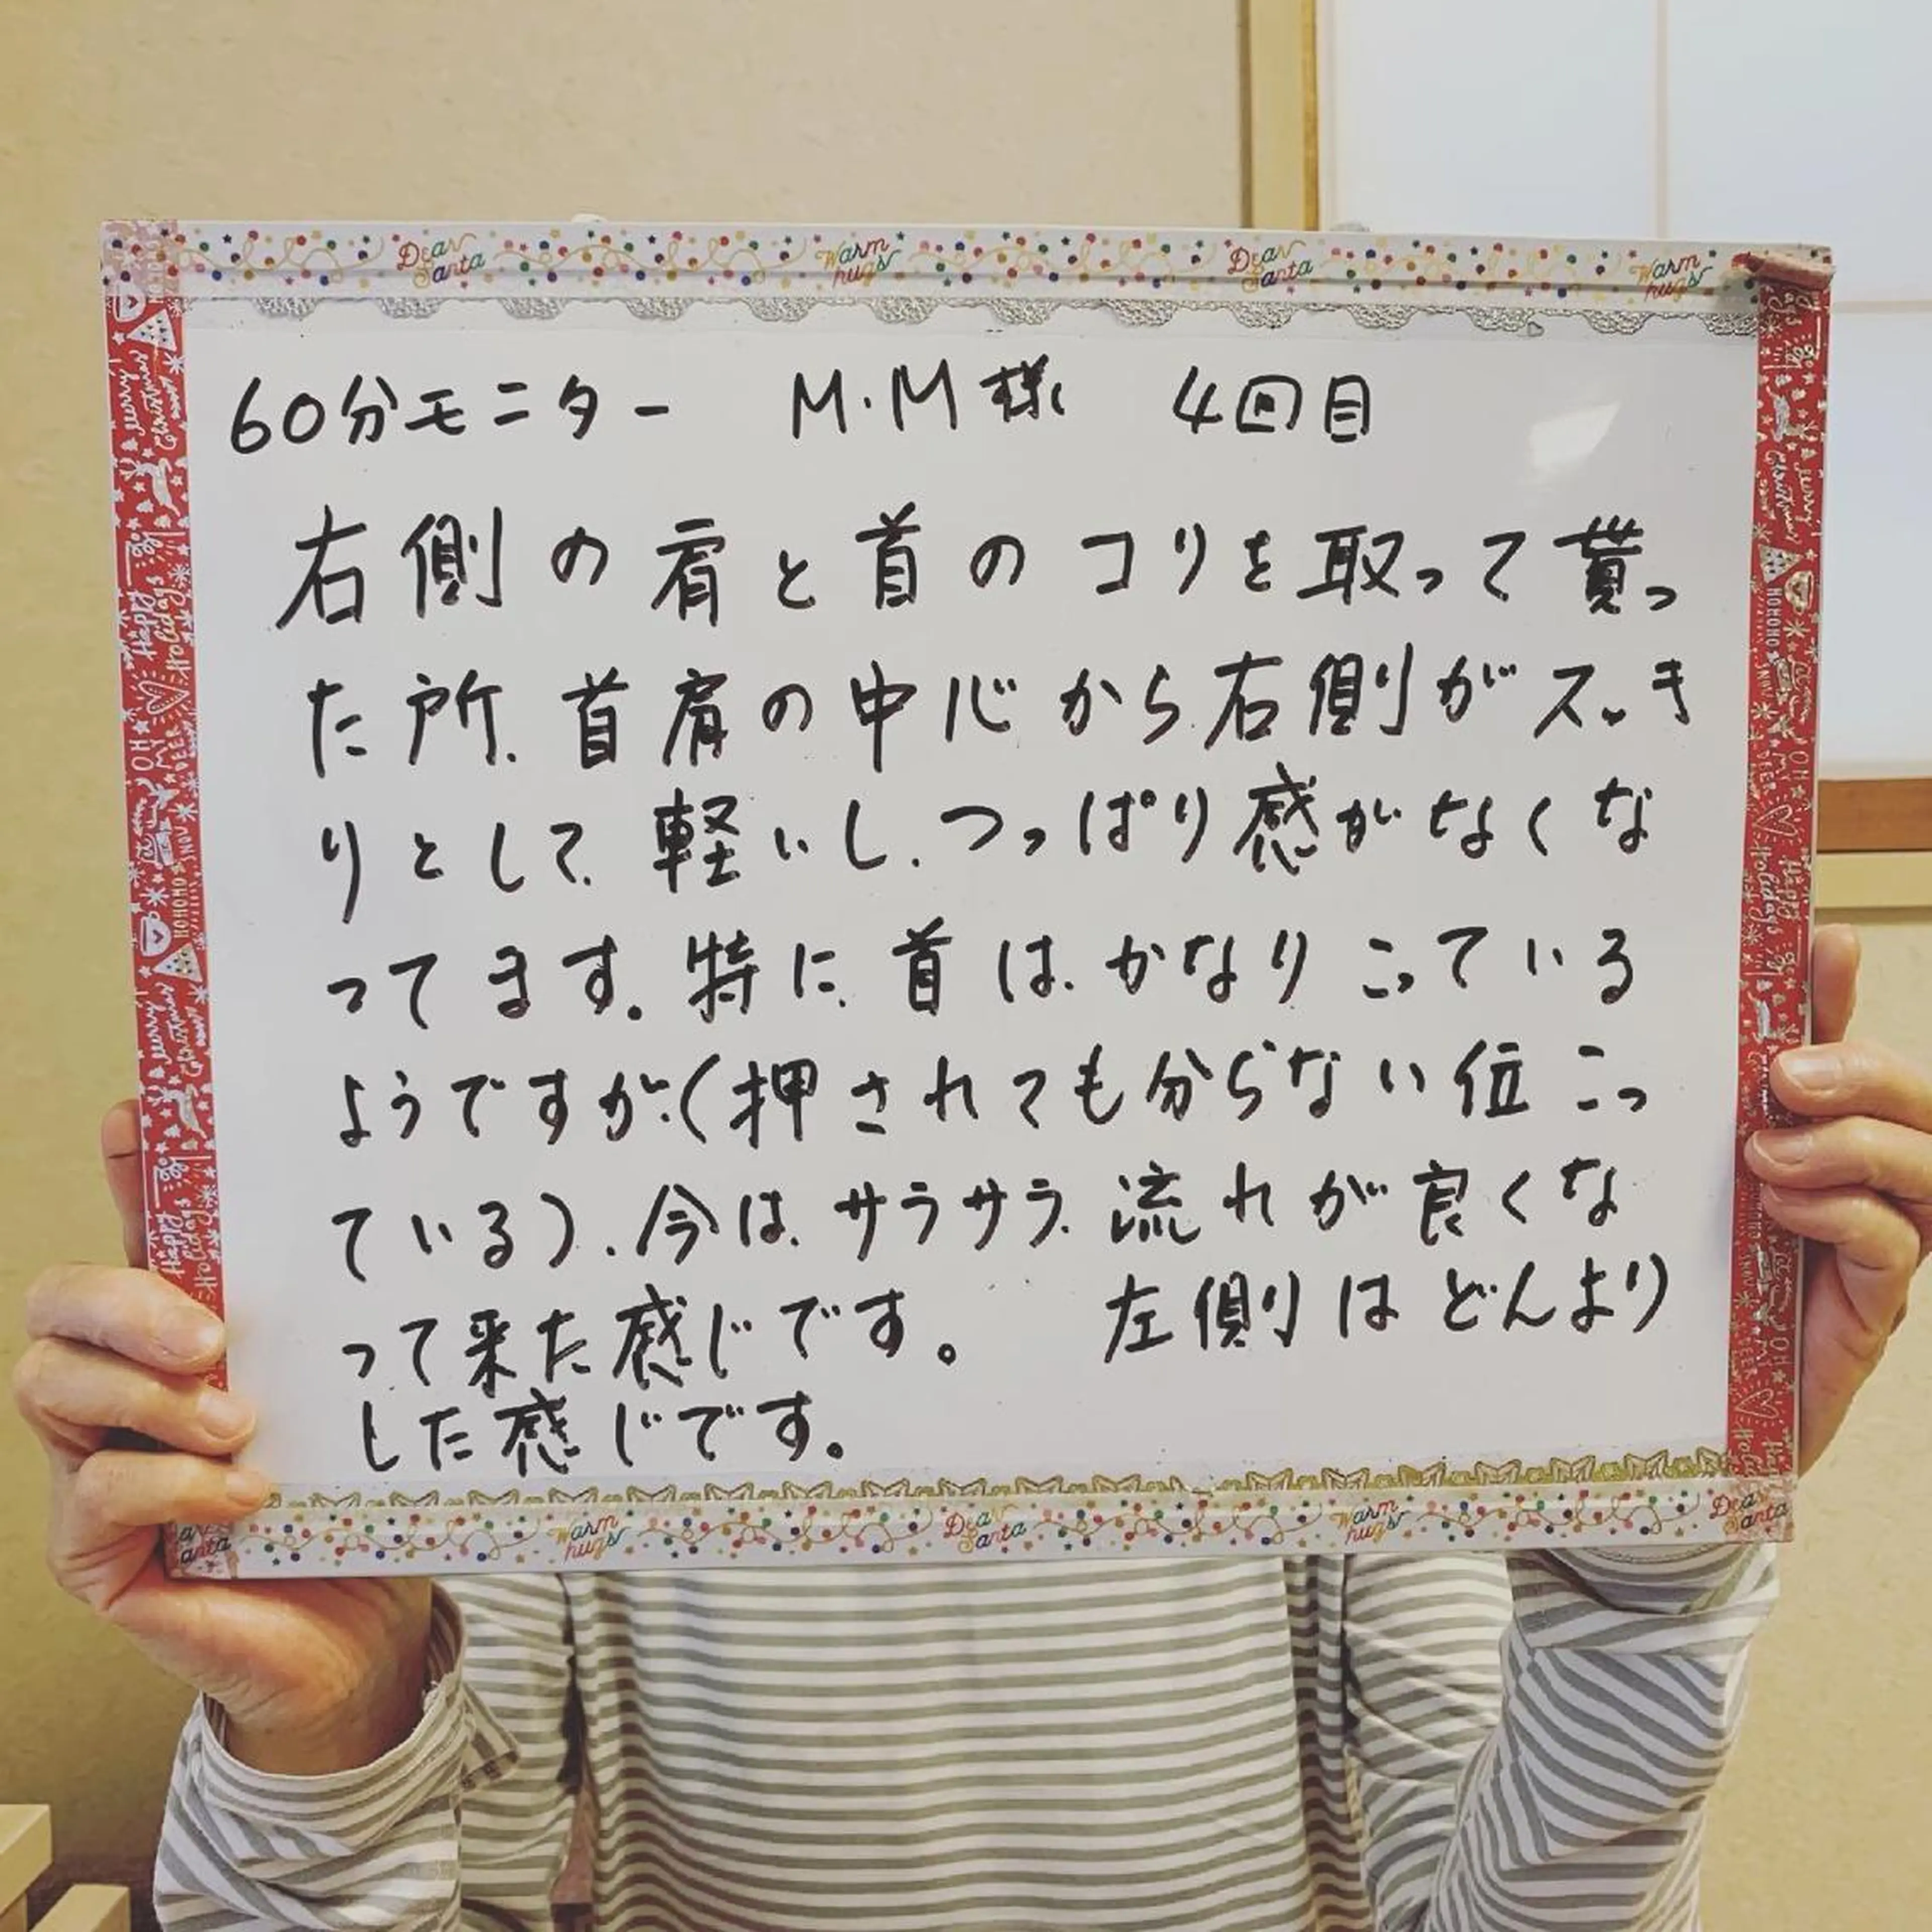 Dear Santa Warm hugs Dear Santa Warm hugs
60分モニター M.M様 4回目
右側の肩と首のコリを取って貰っ
た所、首肩の中心から右側がスッき
りとして、軽いし、つっぱり感がなくな
ってます。特に、首は、かなりこっている
ようですが、(押されても分らない位こっ
ている)、今は、サラサラ、流れが良くな
って来た感じです。 左側はどんより
した感じです。
Warm hugs Dear Santa Warm hugs Dear Santa
Merry Christmas
Happy Holidays
OH MY DEER
SNOW
HOHOHO
Merry Christmas
Happy Holidays
Merry Christmas
HOHOHO
SNOW
OH MY DEER
Happy Holidays